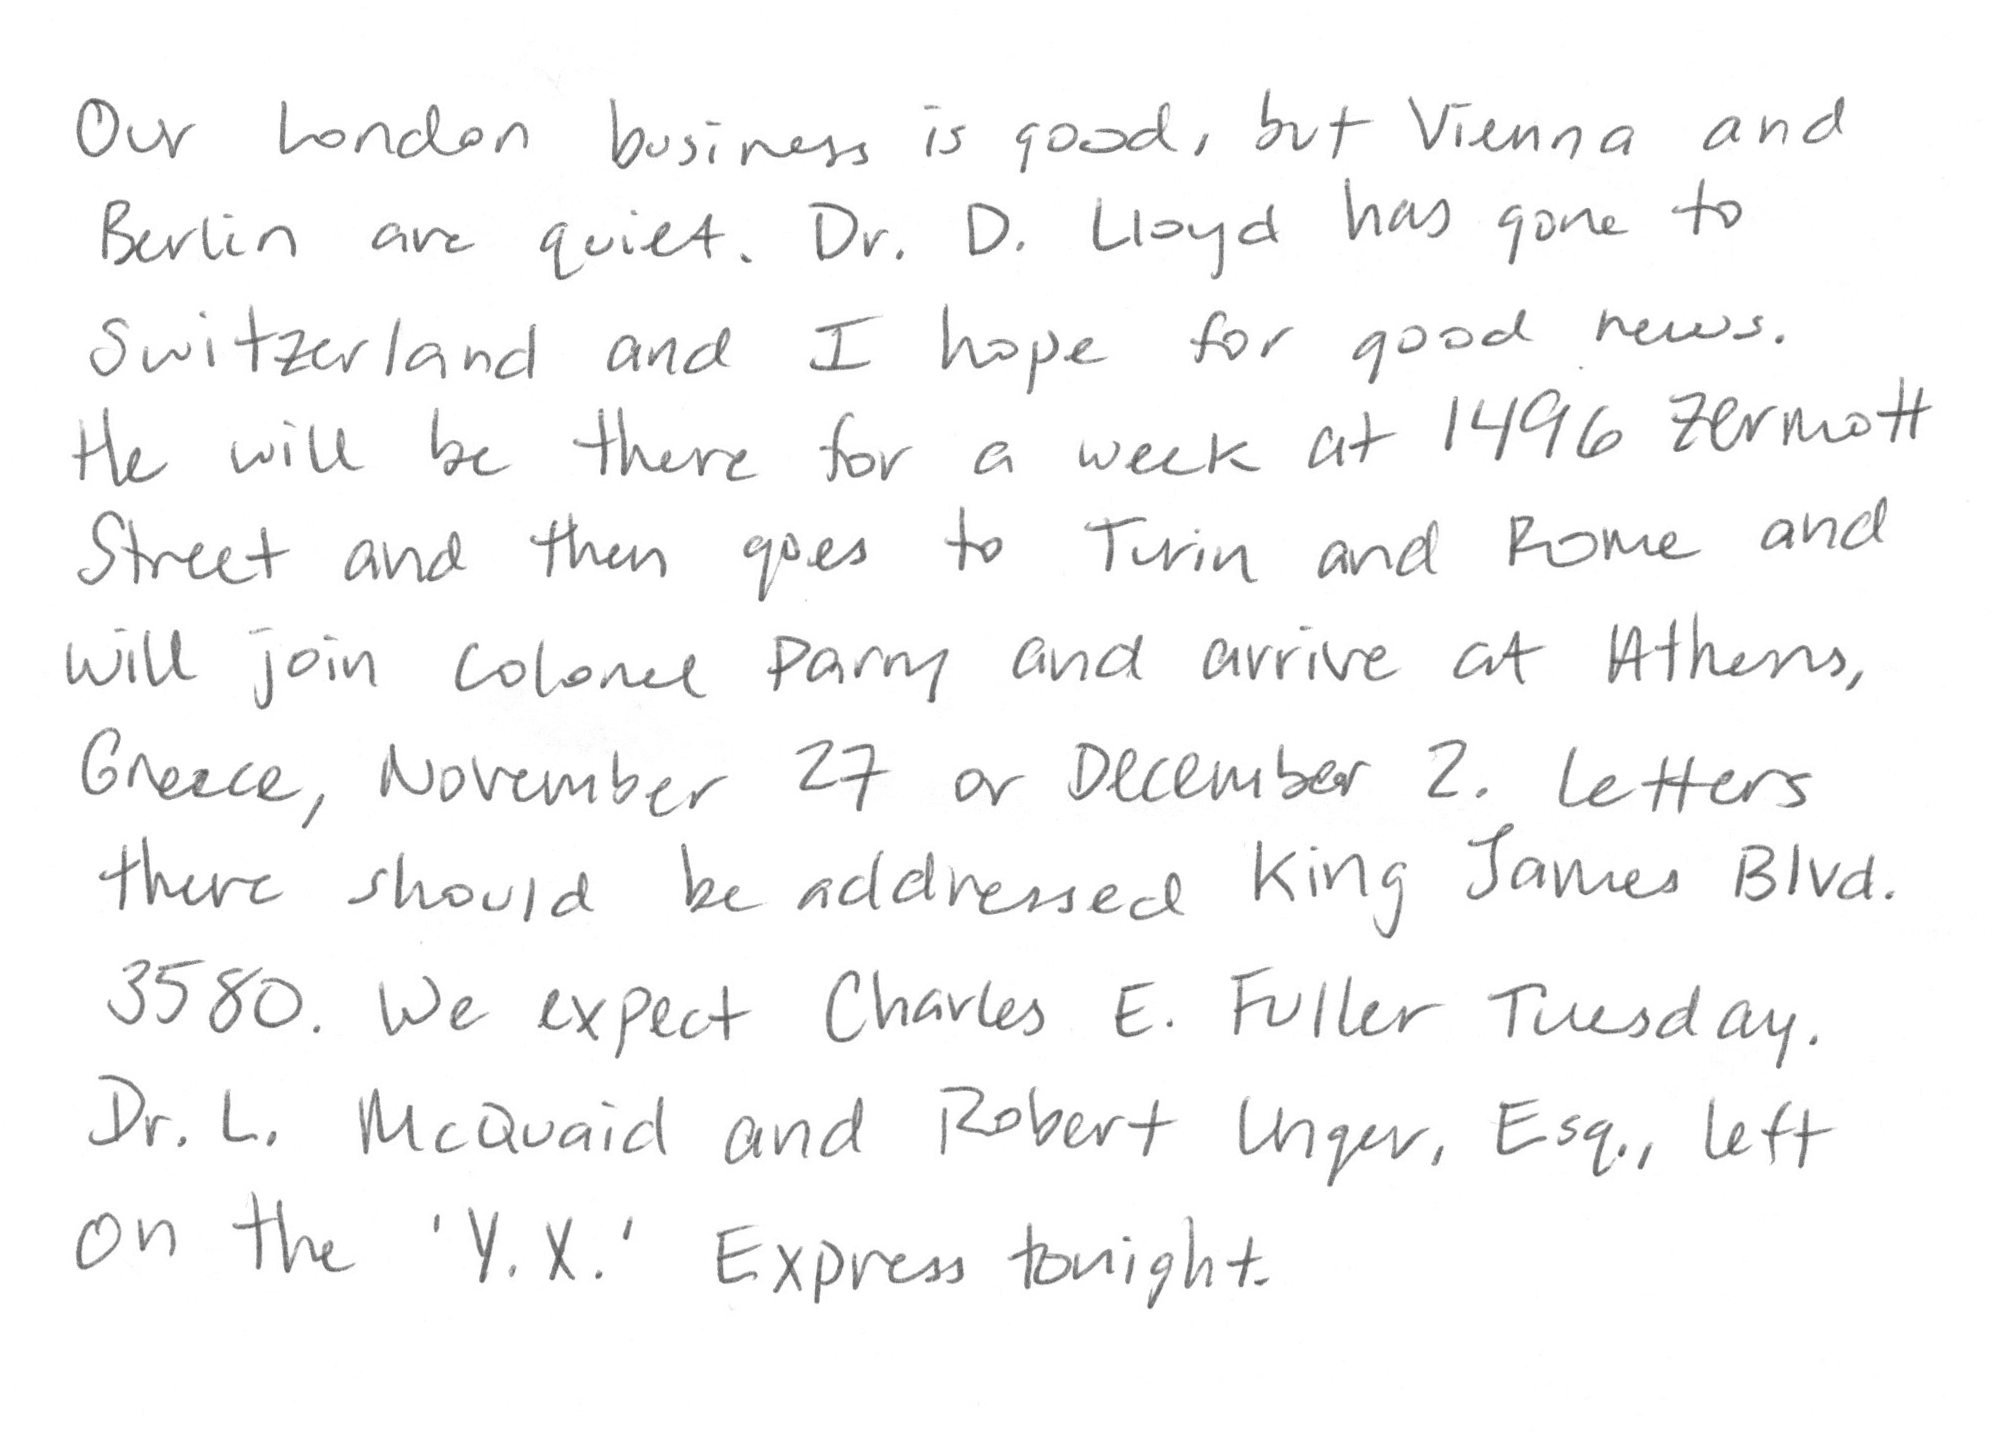 Our London business is good, but Vienna and
Berlin are quiet. Dr. D. Lloyd has gone to
Switzerland and I hope for good news.
He will be there for a week at 1496 Zermott
Street and then goes to Turin and Rome and
will join Colonel Parry and arrive at Athens,
Greece, November 27 or December 2. Letters
there should be addressed King James Blvd.
3580. We expect Charles E. Fuller Tuesday.
Dr. L. McQuaid and Robert Unger, Esq., left
on the 'Y.X.' Express tonight.